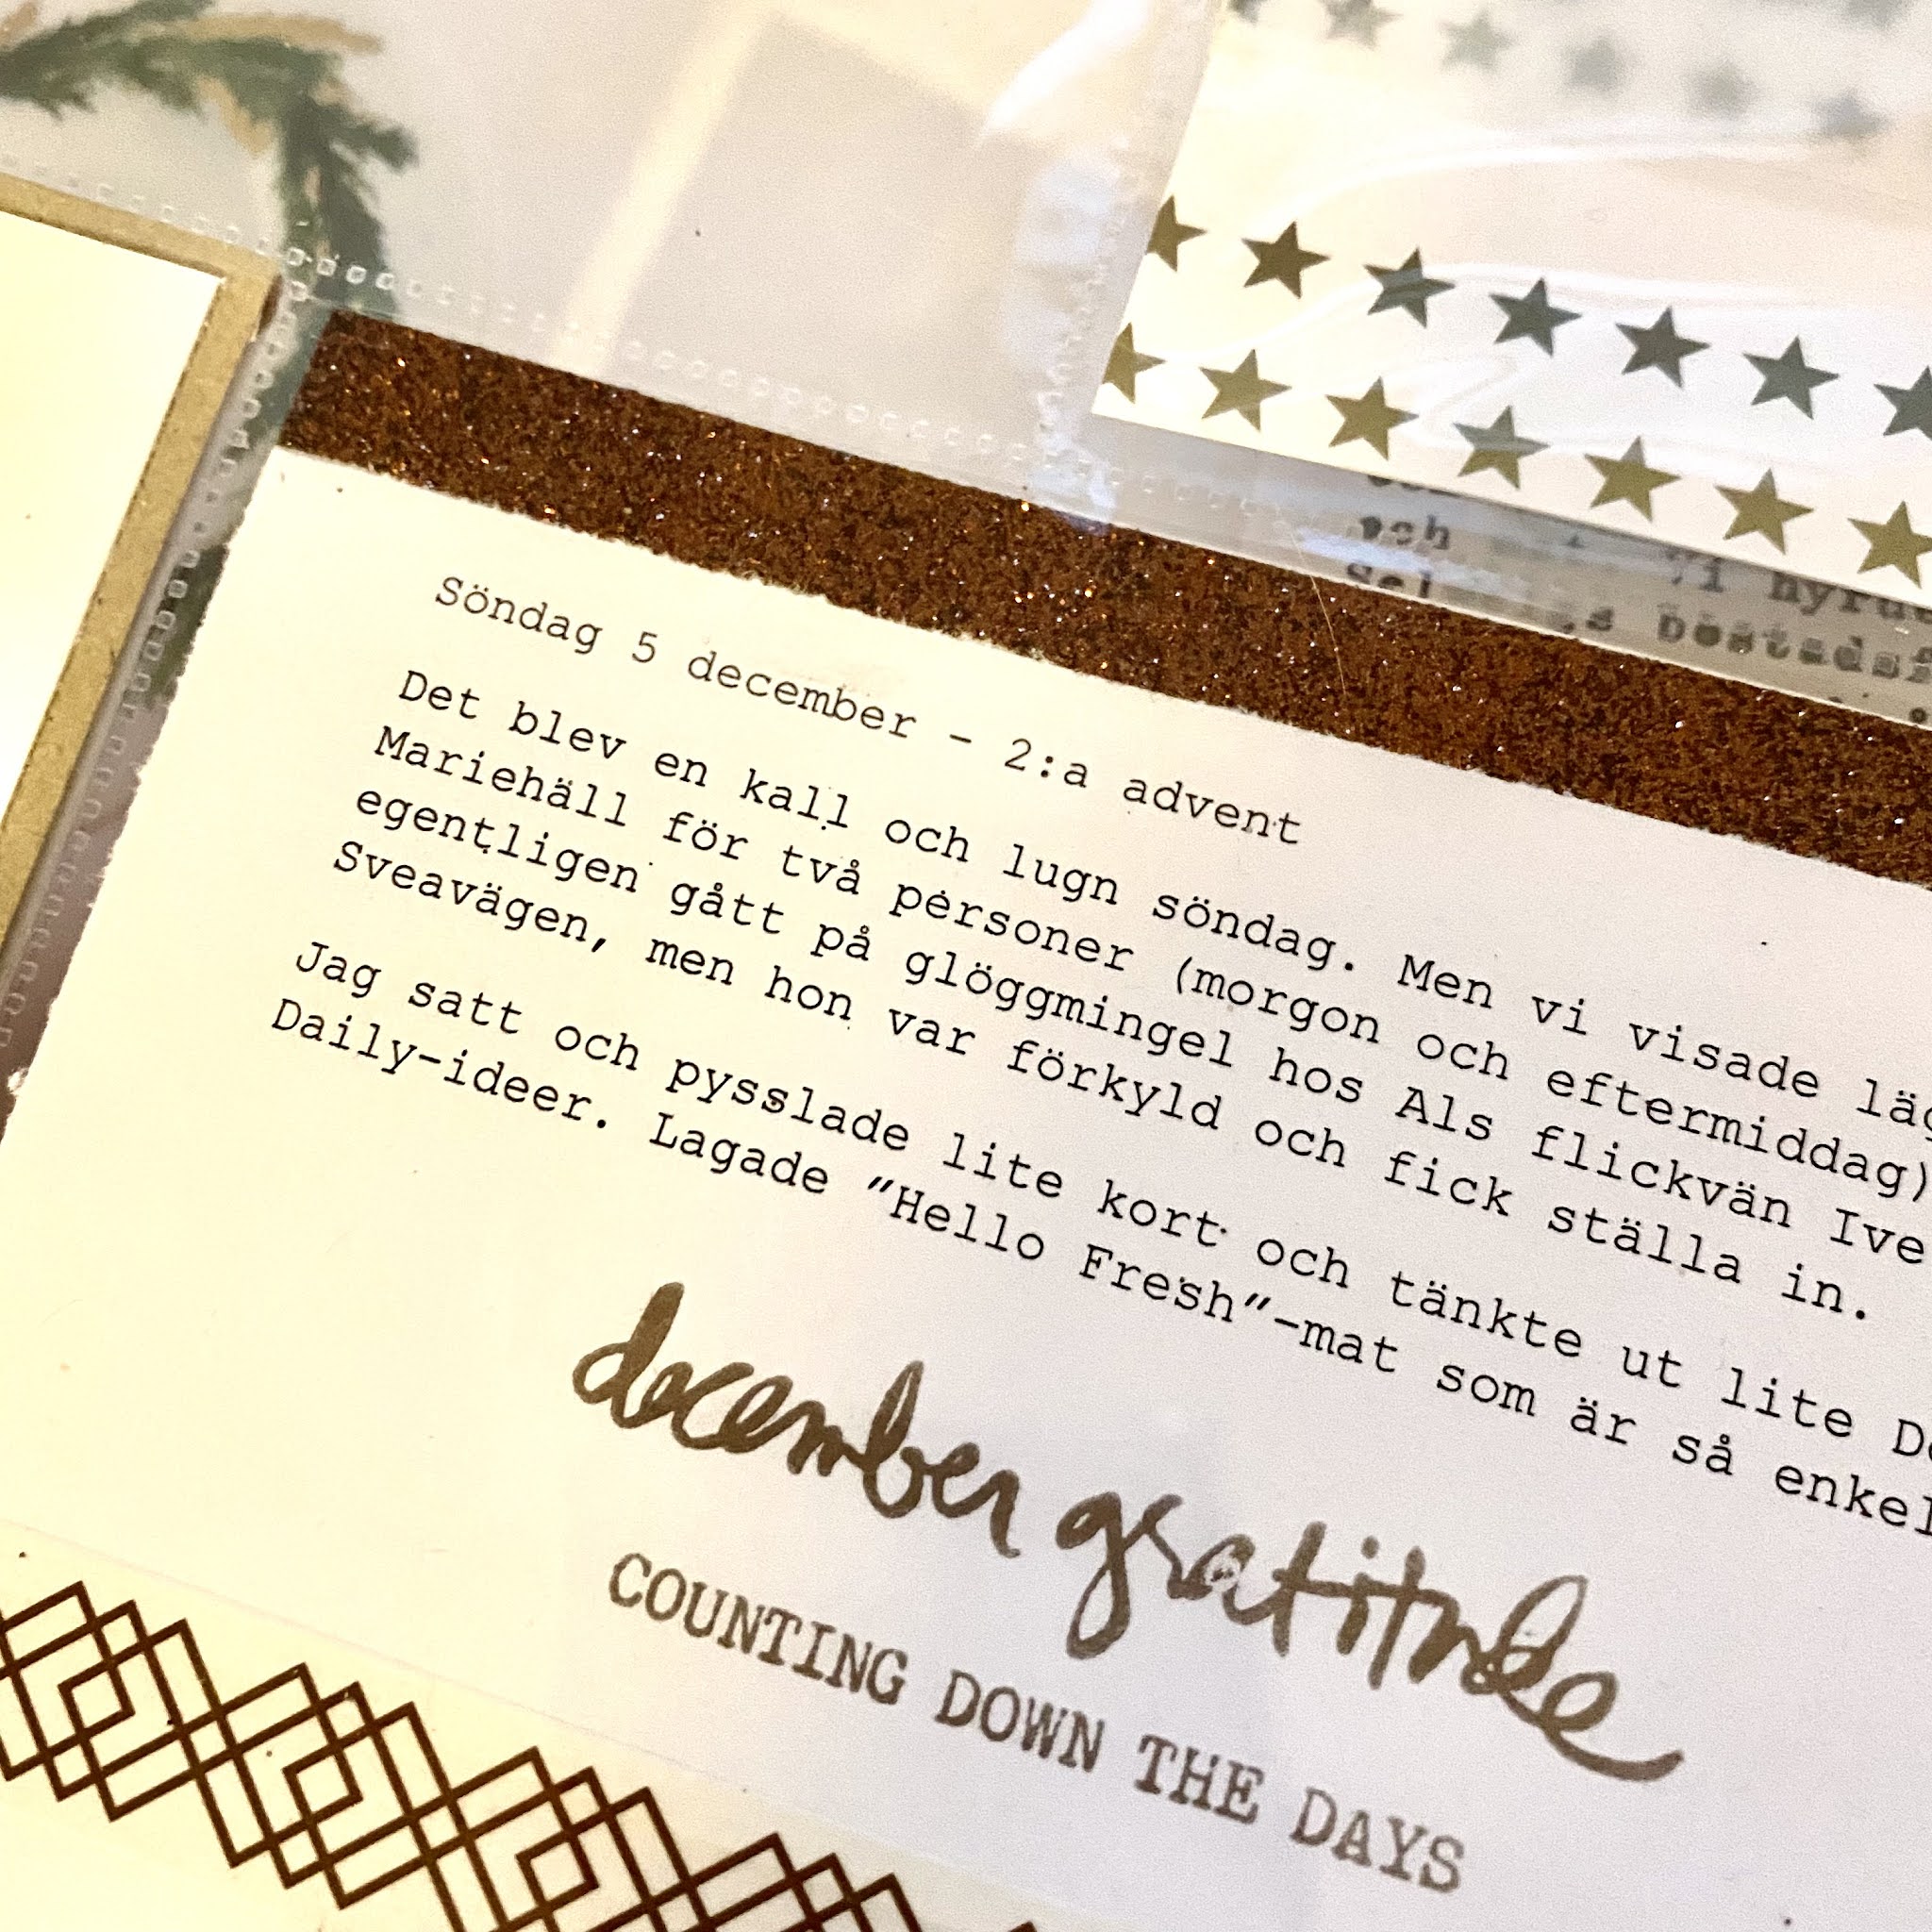 och Vi
Söndag 5 december - 2:a advent
Det blev en kall och lugn söndag. Men vi visade
Mariehäll för två personer (morgon och eftermiddag)
egentligen gått på glöggmingel hos Als flickvän
Sveavägen, men hon var förkyld och fick ställa in.
Jag satt och pysslade lite kort och tänkte ut lite
Daily-ideer. Lagade "Hello Fresh"-mat som är så
december gratitude
COUNTING DOWN THE DAYS